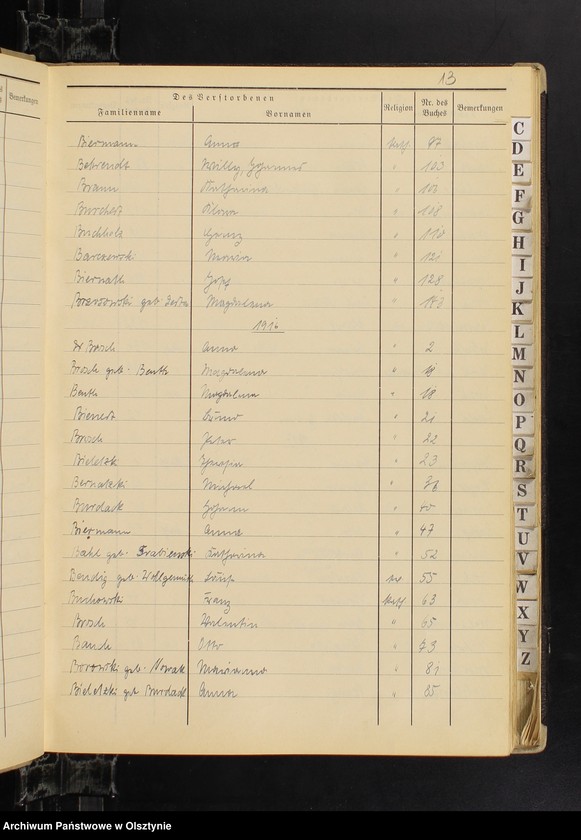 Bemerkungen
13
Des Verstorbenen
Familienname Vornamen Religion Nr. des Buches Bemerkungen
Biermann Anna kath. 97
Behrendt Willy, Johannes " 103
Braun Katharina " 103
Burchert " 108
Buchholz Franz " 110
Barczewski Maria " 121
Biernath Josef " 128
geb. Magdalena "
1916
Brosch Anna " 2
Brosch geb. Benth Magdalena "
Benth Magdalena " 18
Bienert Bruno " 21
Brosch Peter " 22
Bieletzki " 23
Bernatzki Michael "
Burdack Johann " 40
Biermann Anna " 47
geb. Katharina " 52
geb. Wollgemuth Luise ev. 55
Buchowski Franz kath. 63
Brosch Valentin " 65
Bande Otto " 73
Borowski geb. Nowak Marianna " 81
Bieletzki geb Burdack Anna " 85
C
D
E
F
G
H
I
J
K
L
M
N
O
P
Q
R
S
T
U
V
W
X
Y
Z
Archiwum Państwowe w Olsztynie